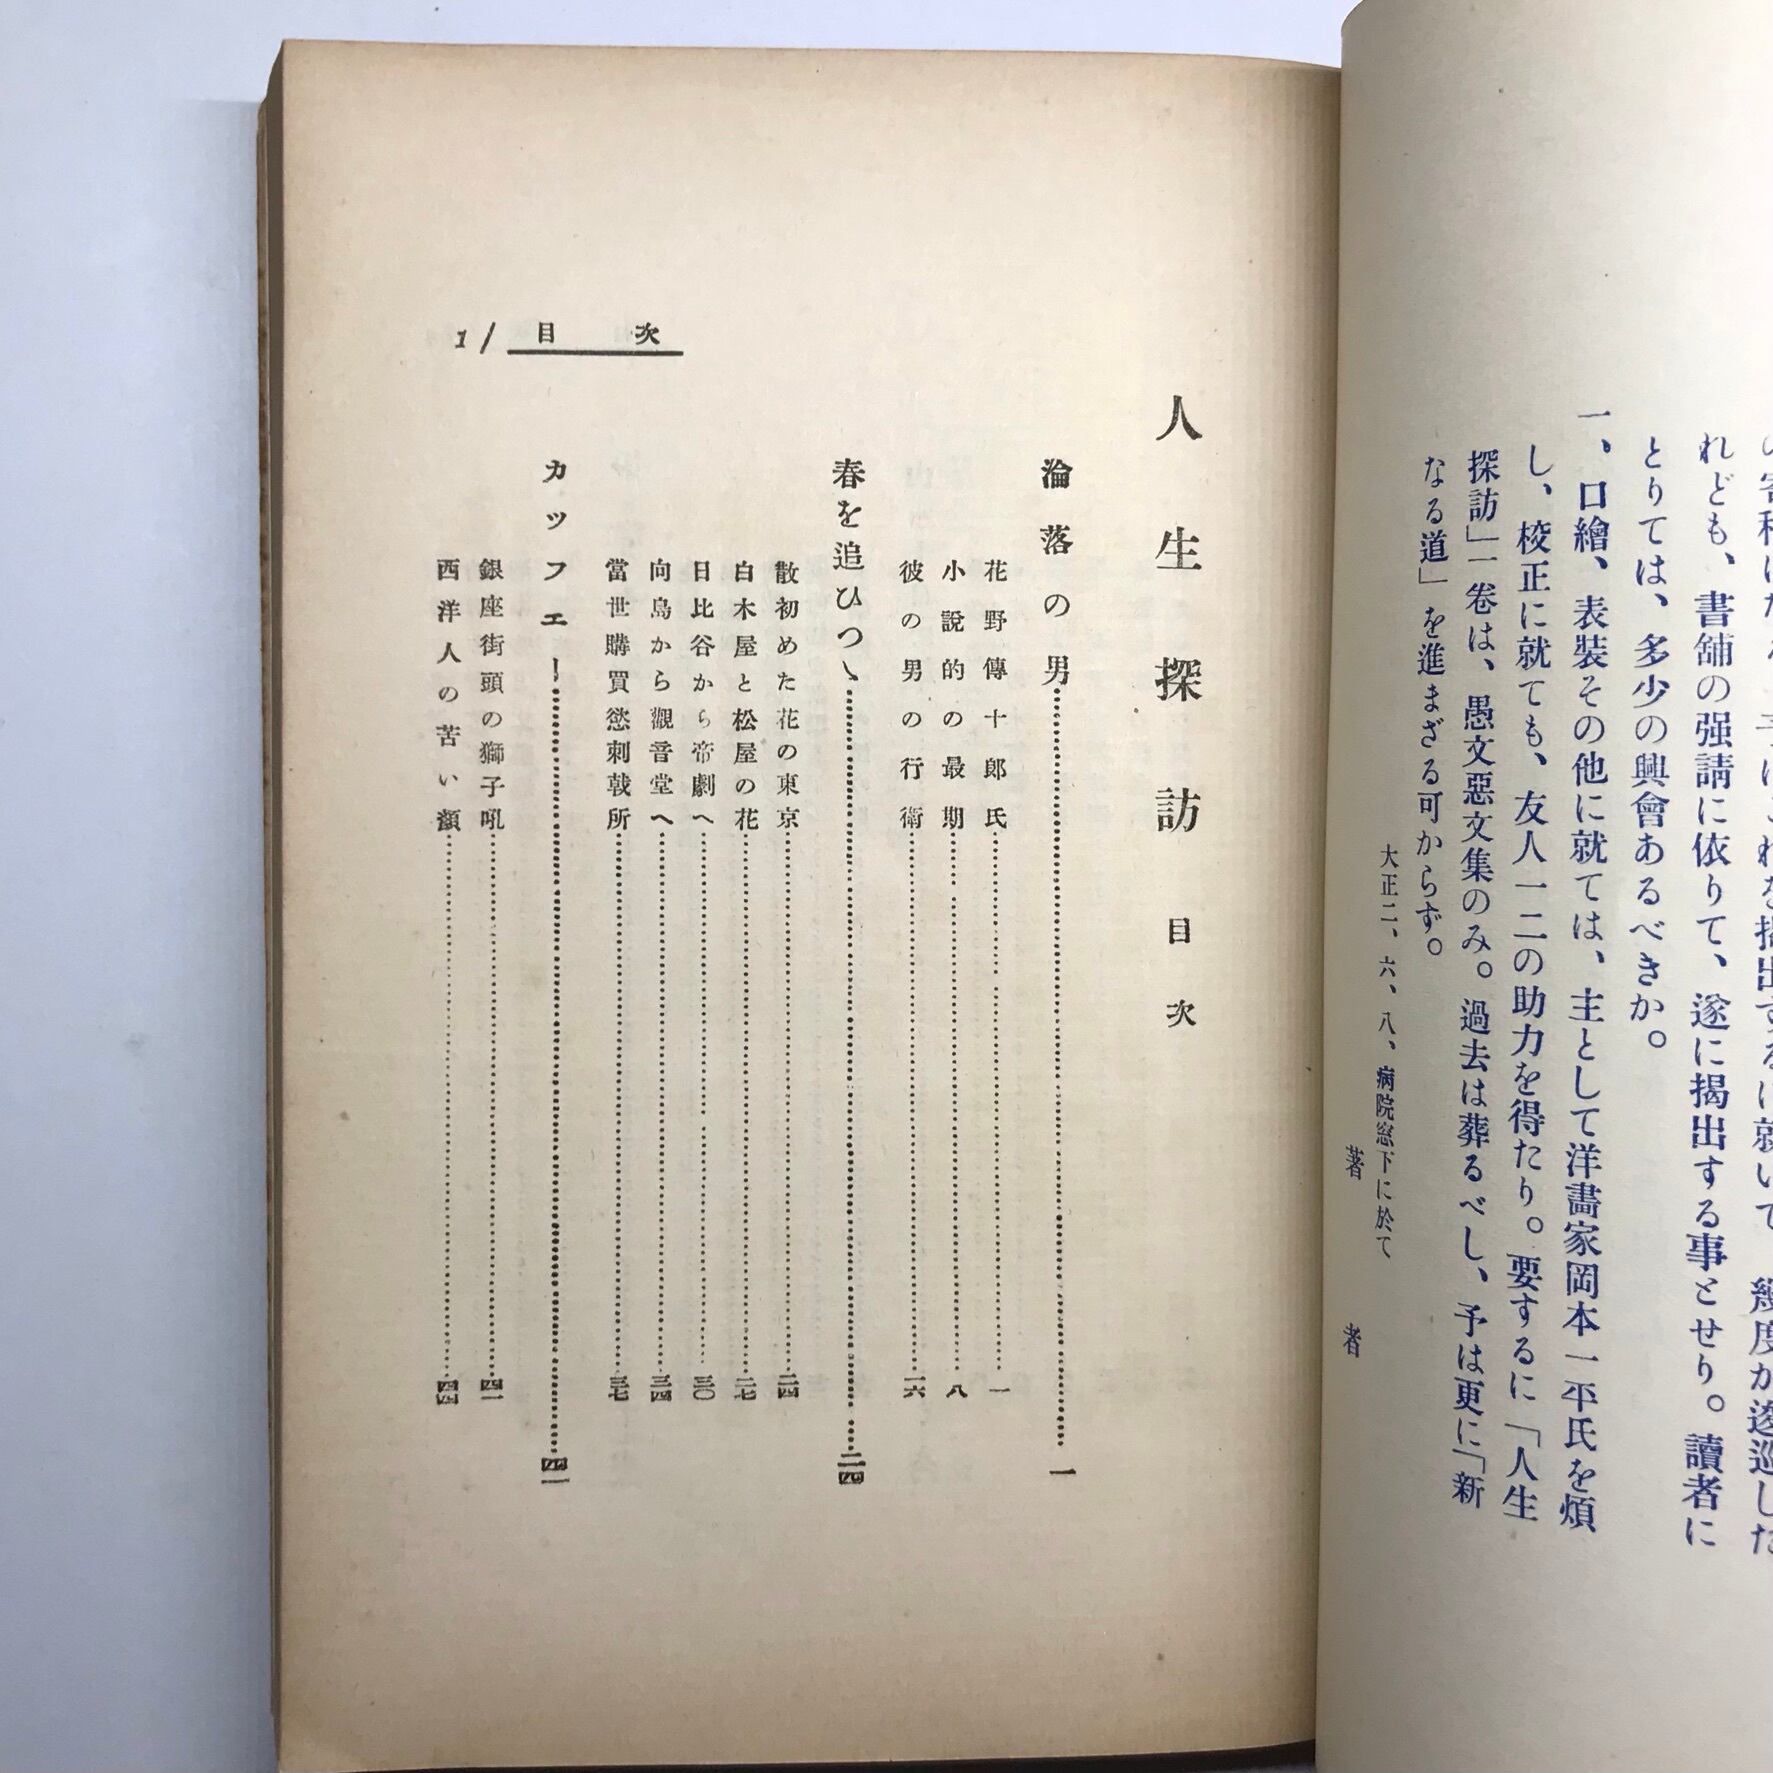 れども、書舗の强請に依りて、遂に揭出する事とせり。讀者に
とりては、多少の興會あるべきか。
一、口繪、表裝その他に就ては、主として洋畵家岡本一平氏を煩
し、校正に就ても、友人一二の助力を得たり。要するに「人生
探訪」一卷は、愚文惡文集のみ。過去は葬るべし、予は更に「新
なる道」を進まざる可からず。
大正二、六、八、病院窓下に於て
著者
人生探訪目次
淪落の男……一
花野傳十郎氏……一
小說的の最期……八
彼の男の行衛……一六
春を追ひつゝ……二四
散初めた花の東京……二四
白木屋と松屋の花……二七
日比谷から帝劇へ……三〇
向島から觀音堂へ……三四
當世購買慾刺戟所……三七
カツフエー……四一
銀座街頭の獅子吼……四一
西洋人の苦い顏……四四
1/目次